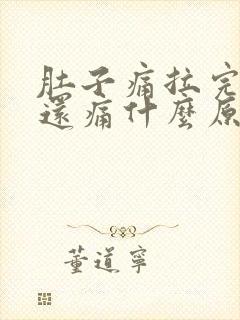 肚子痛拉完
還痛什麼原
董道寧